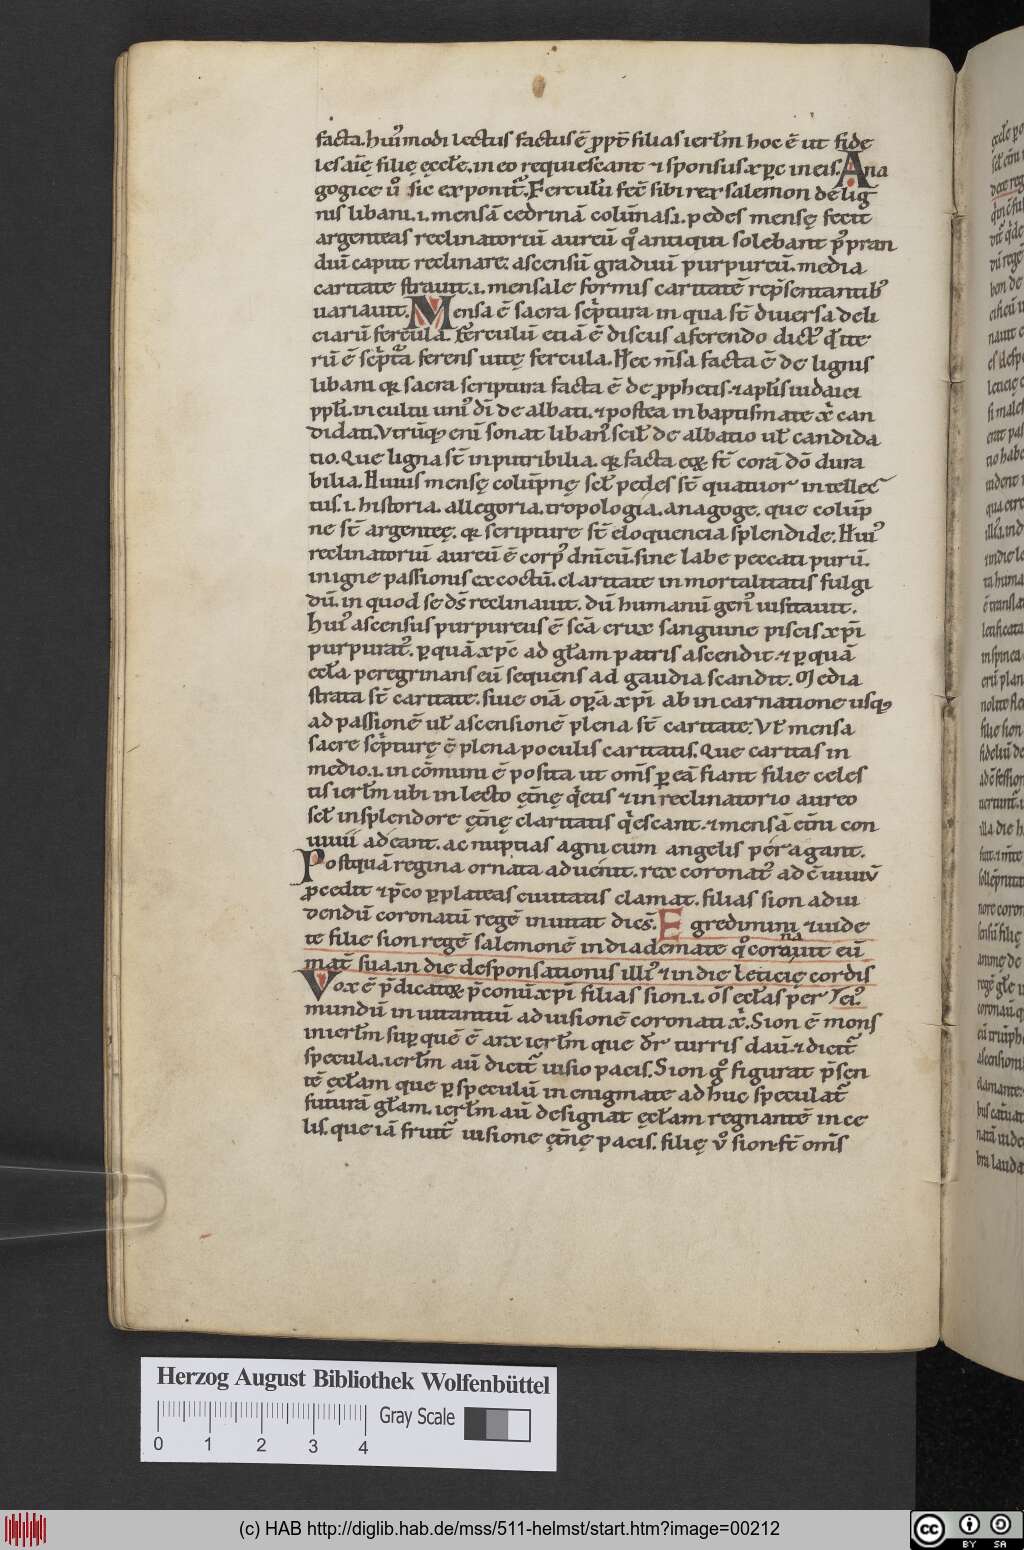 facta. hui᷒modi lectus factus ē ꝓpt̄ filias ierl̄m hoc ē ut fide
les aīę filię ęccl̄e. in eo requiescant ⁊ sponsus xp̄c in eis. Ana
gogice ū sic exponit᷑. Ferculū fec̄ sibi rex salemon de lig
nis libani .i. mensā cedrinā colūnas .i. pedes mensę fecit
argenteas reclinatoriū aureū qͦ antiqui solebant p᷒ pran
diū caput reclinare. ascensū graduū purpureū. media
caritate strauit .i. mensale formis caritatē rep̄sentantib᷒
uariauit. Mensa ē sacra sc̄ptura in qua st̄ diuersa deli
ciarū fercula. Ferculū etiā ē discus a ferendo dict᷒ q̄ ite
rū ē sc̄pt᷑a ferens uitę fercula. Hec m̄sa facta ē de lignis
libani qꝛ sacra scriptura facta ē de ꝓphetis. ⁊ apl̄is iudaici
ppl̄i. in cultu uni᷒ dī de albati. ⁊ postea in baptismate xp̄i can
didati. Vtrūqꝫ enī sonat liban᷒ scil̄ de albatio ul̄ candida
tio. Que ligna st̄ inputribilia. qꝛ facta eoꝝ st̄ corā dō dura
bilia. Huius mensę colūpnę scl̄ pedes st̄ quatuor intellec
tus .i. historia. allegoria. tropologia. anagoge. que colūp
ne st̄ argentęę. qꝛ scripture st̄ eloquencia splendide. Hui᷒
reclinatoriū aureū ē corp᷒ dn̄icū. sine labe peccati purū.
in igne passionis excoctū. claritate inmortalitatis fulgi
dū. in quod se ds̄ reclinauit. dū humanū gen᷒ uisitauit.
Hui᷒ ascensus purpureus ē sc̄a crux sanguine piscis xp̄i
purpurat᷒. ꝑ quā xp̄c ad gl̄am patris ascendit. ⁊ ꝑ quā
eccl̄a peregrinans eū sequens ad gaudia scandit. Media
strata st̄ caritate. siue oīa oꝑa xp̄i ab incarnatione usqꝫ
ad passionē ul̄ ascensionē plena st̄ caritate. Vl̄ mensa
sacre sc̄pturę ē plena poculis caritatis. Que caritas in
medio .i. in cōmuni ē posita ut om̄s ꝑ eā fiant filie celes
tis ierl̄m ubi in lecto ęt̄nę q̄etis ⁊ in reclinatorio aureo
scl̄ in splendore ęt̄nę claritatis q̄escant. ⁊ mensā et̄ni con
uiuii adeant. ac nuptias agni cum angelis peragant.
Postquā regina ornata aduenit. rex coronat᷒ ad c̄uiuiū
ꝓcedit ⁊ p̄co ꝑ plateas ciuitatis clamat. filias sion ad ui
dendū coronatū regē inuitat dicēs. Egredimini ⁊ uide
te filie sion regē salemonē in diademate qͦ coronauit eū
mat̄ sua. in die desponsationis illi᷒ ⁊ in die leticię cordis
Vox ē p̄dicatoꝝ p̄conū xp̄i filias sion .i. oēs eccl̄as per Ter᷒
mundū inuitantiū ad uisionē coronati xp̄i. Sion ē mons
in ierl̄m suꝑ quē ē arx ierl̄m que dr̄ turris dauid ⁊ dicit᷑
specula. ierl̄m aū dicit᷑ uisio pacis. Sion gͦ figurat p̄sen
tē eccl̄am que ꝑ speculū in enigmate adhuc speculat᷑
futurā gl̄am. ierl̄m aū designat eccl̄am regnantē in ce
lis. que iā fruit᷑ uisione ęt̄nę pacis. filię ū sion st̄ om̄s
Herzog August Bibliothek Wolfenbüttel
Gray Scale
0 1 2 3 4
(c) HAB http://diglib.hab.de/mss/511-helmst/start.htm?image=00212
cc BY SA